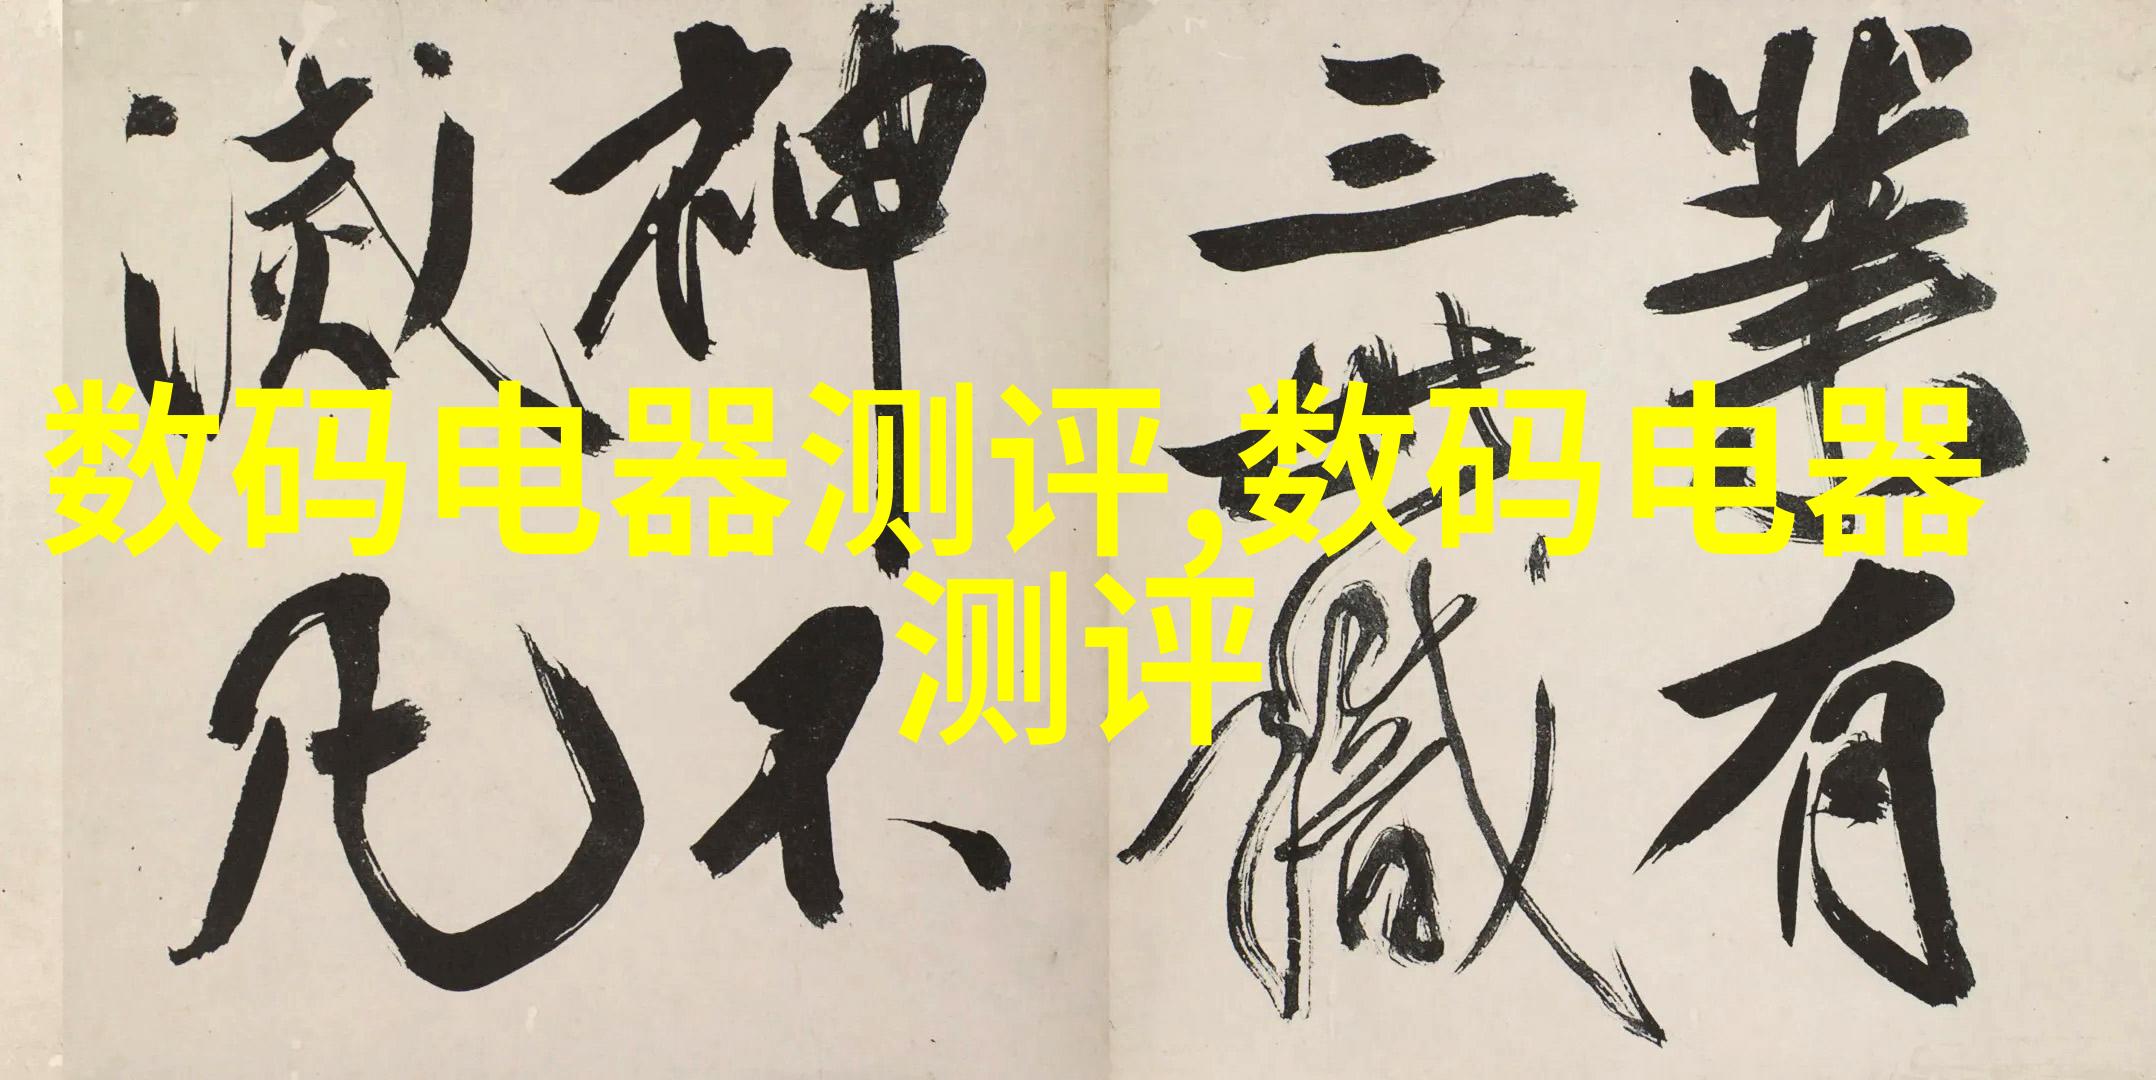 数码电器测评,数码电器
测评
業有
三世職
神不
滅凡